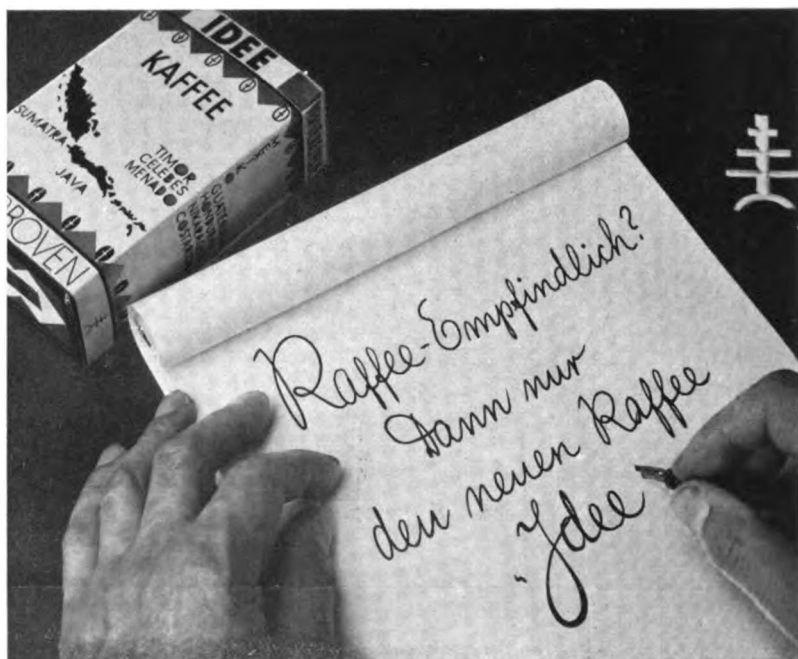 IDEE
KAFFEE
SUMATRA
JAVA
TIMOR
CELEBES
MENADO
Kaffee-Empfindlich?
Dann nur
den neuen Kaffee
„Idee